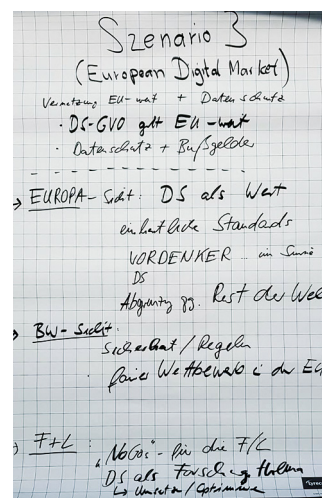 Szenario 3
(European Digital Market)
Vernetzung EU-weit + Datenschutz
· DS-GVO gilt EU-weit
· Datenschutz + Bußgelder
→ EUROPA-Sicht: DS als Wert
einheitliche Standards
VORDENKER ... im
DS
Abgrenzung gg. Rest der Wel
→ BW-Sicht:
Sicherheit / Regeln
· faires Wettbewerb i der EG
→ F+L :
"NoGos" - für die F/L
DS als Forschungsthema
↳ Umsetzen / Optimieren